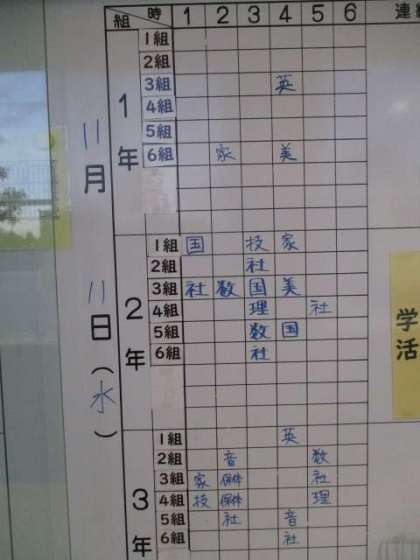 組 時 1 2 3 4 5 6 連
11月11日(水)
1年
1組
2組
3組 英
4組
5組
6組 家 美
2年
1組 国 技 家
2組 社
3組 社 数 国 美
4組 理 社
5組 数 国
6組 社
学活
3年
1組 英
2組 音 数
3組 家 保体 社
4組 技 保体 理
5組 社 音
6組 社